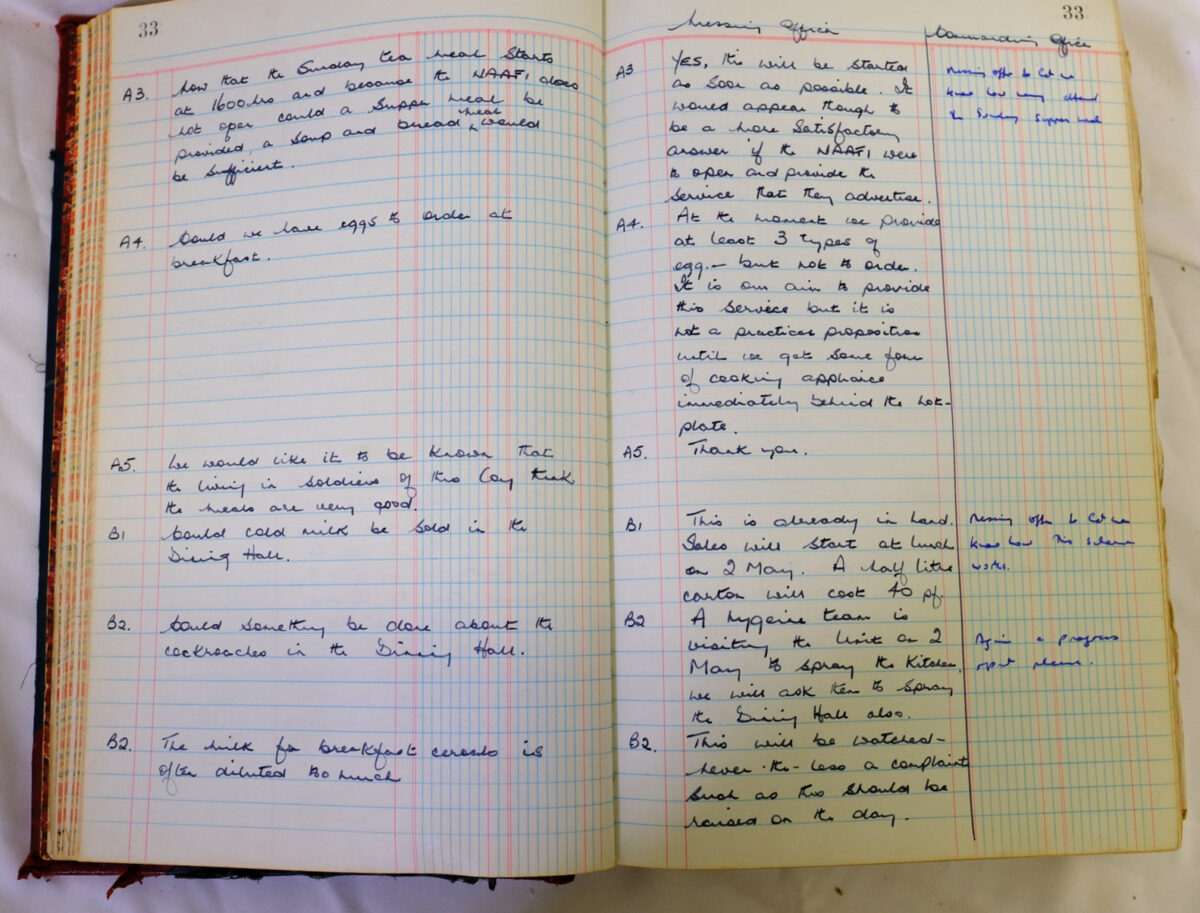 33
A3. Now that the Sunday tea meal starts
at 1600hrs and because the NAAFI does
not open could a supper meal be
provided, a soup and bread meal would
be sufficient.
A4. Could we have eggs to order at
breakfast.
A5. We would like it to be known that
the living in soldiers of this Coy think
the meals are very good.
B1 Could cold milk be sold in the
Dining Hall.
B2. Could something be done about the
cockroaches in the Dining Hall.
B2. The milk for breakfast cereals is
often diluted too much
33
Messing Officer
Commanding Officer
A3 YES, this will be started
as soon as possible. It
would appear though to
be a more satisfactory
answer if the NAAFI were
to open and provide the
service that they advertise.
A4. At the moment we provide
at least 3 types of
egg. - but not to order.
It is our aim to provide
this service but it is
not a practical proposition
until we get some form
of cooking appliance
immediately behind the hot-
plate.
A5. Thank you.
B1 This is already in hand.
Sales will start at lunch
on 2 May. A half litre
carton will cost 40 pf.
B2 A hygiene team is
visiting the Unit on 2
May to spray the Kitchen.
we will ask them to spray
the Dining Hall also.
B2. This will be watched-
never-the-less a complaint
such as this should be
raised on the day.
Messing offr to let me
know how many attend
the Sunday Supper meal
Messing offr to let me
know how this scheme
works.
Again a progress
report please.